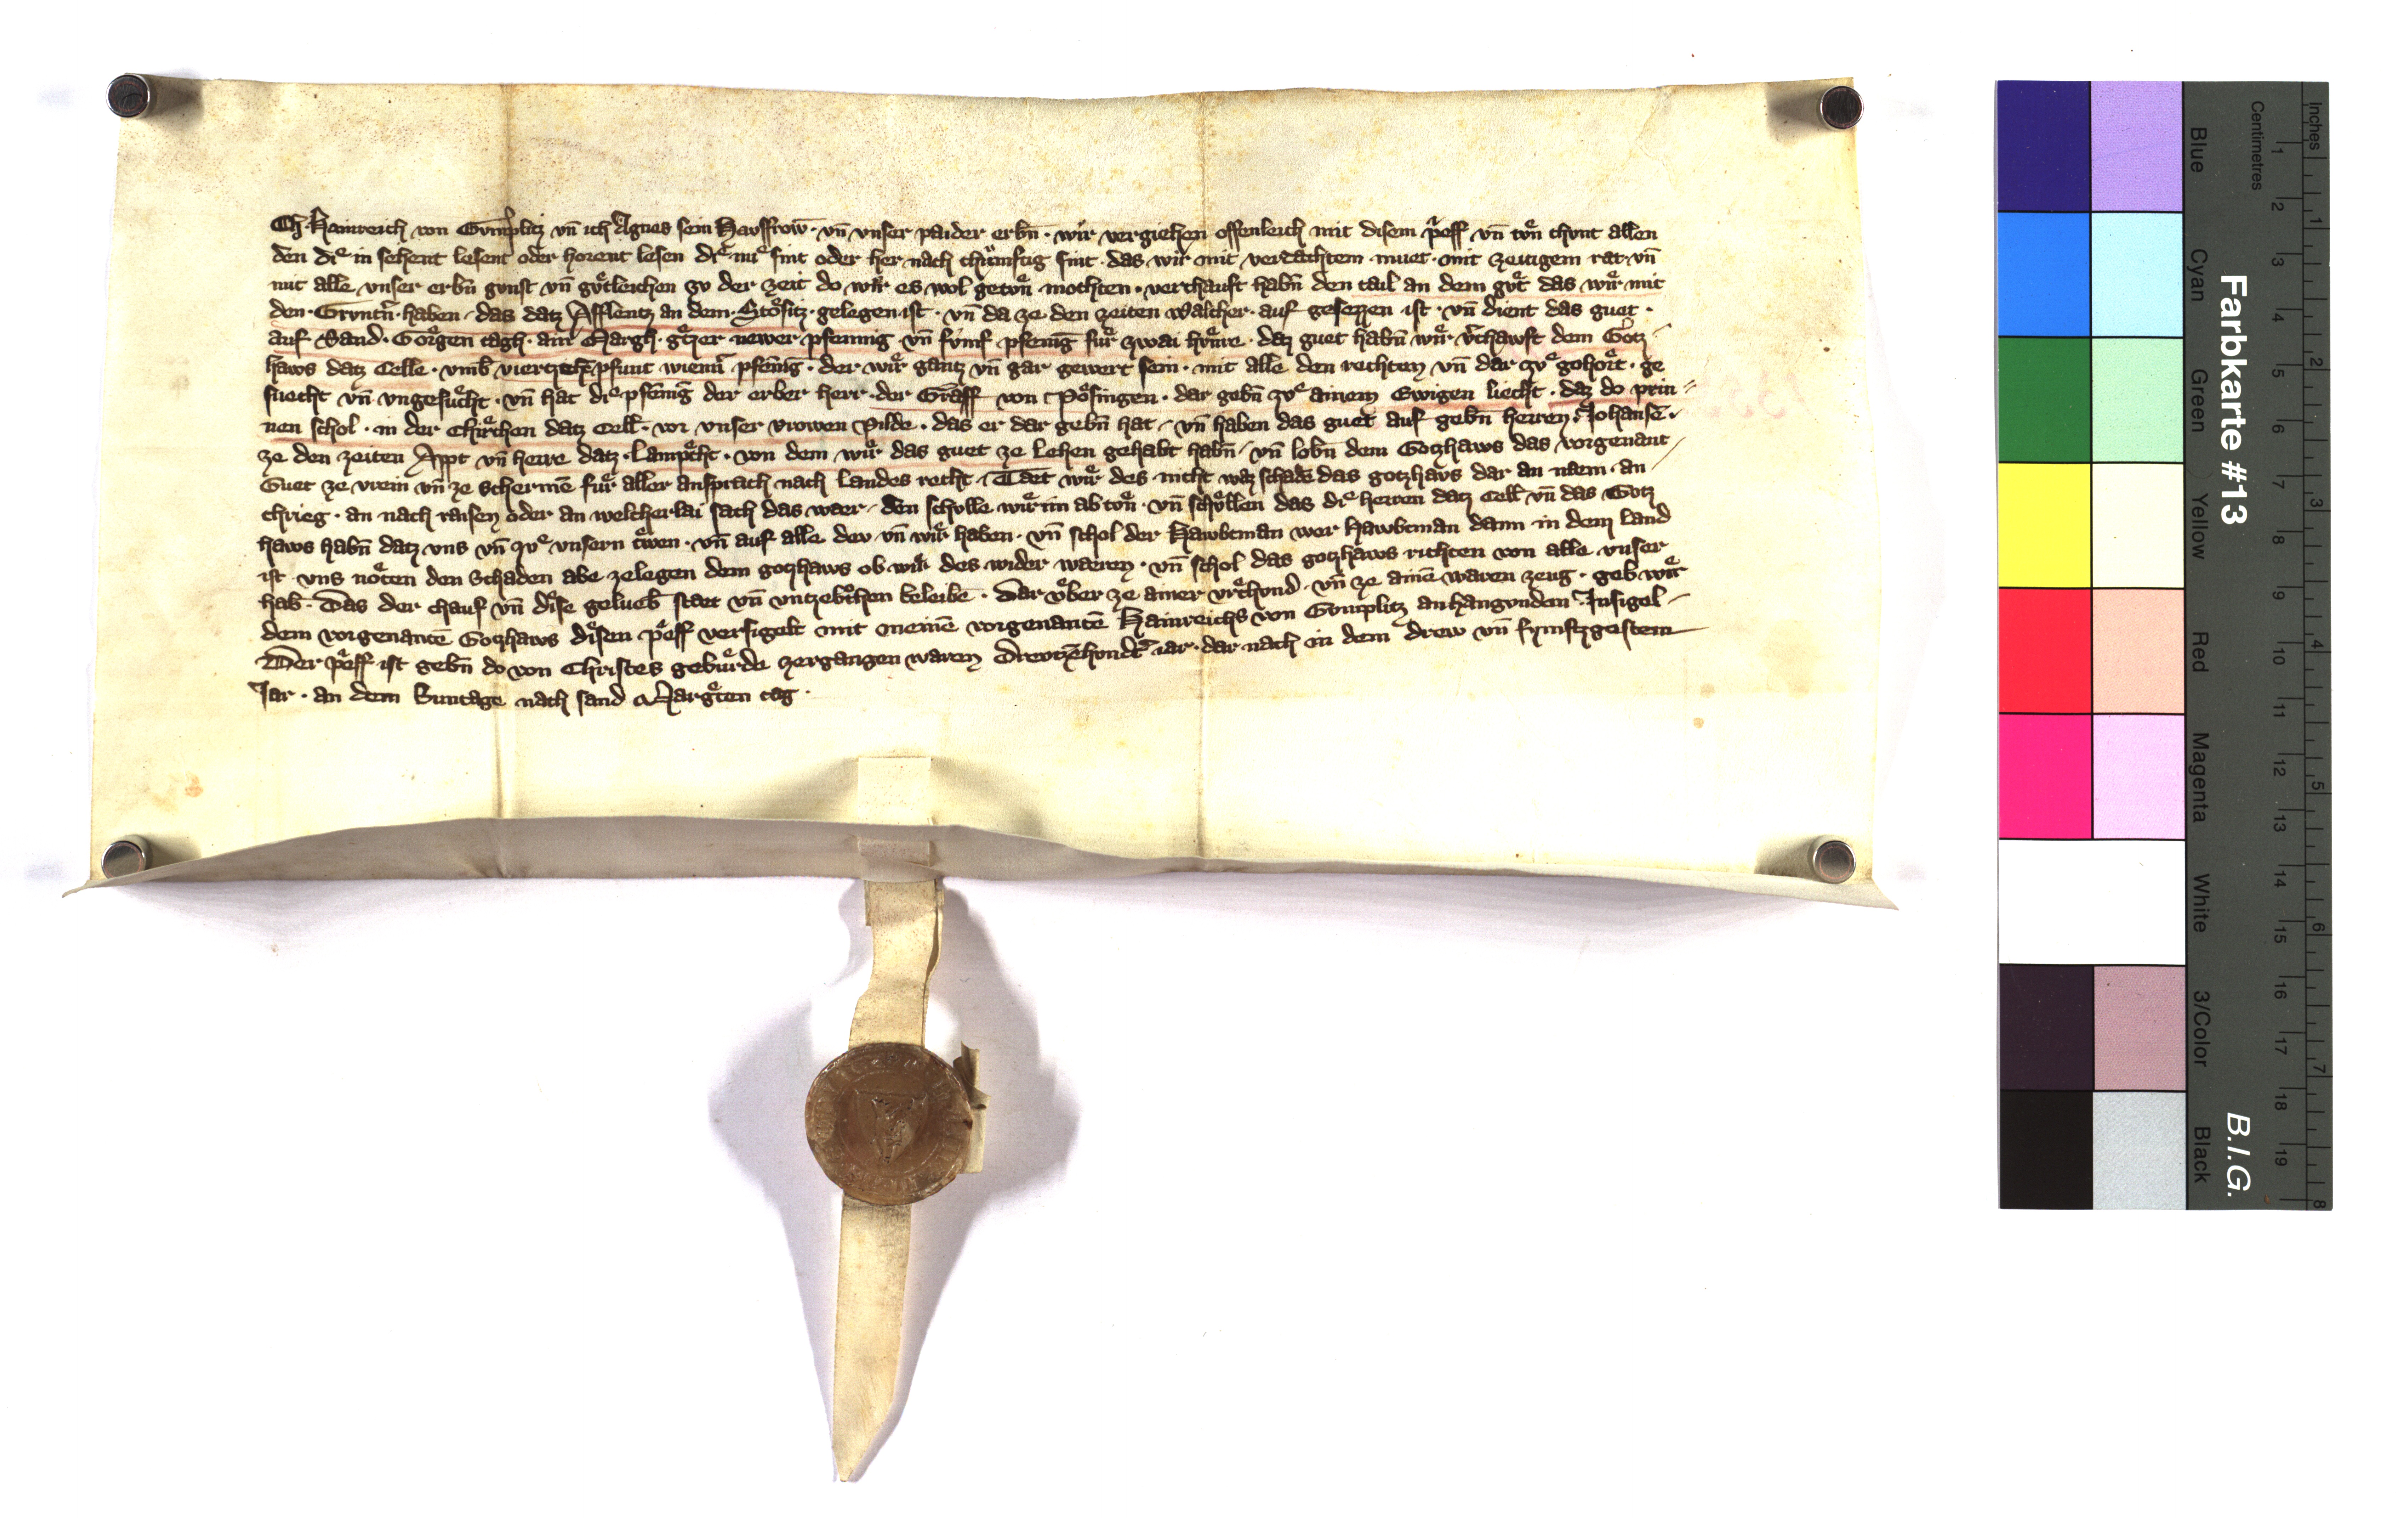 Ch Hainreich von Gumplitz vn̄ ich Agnes sein Havsfrow̄ · vn̄ vnser paider erbn̄ · wir vergiehen offenleich mit disem prieff vn̄ tvͤn chvnt allen
den dieͤ in sehent lesent oder horent lesen dieͤ nv sint oder her nach chvͤmftig sint · das wir mit verdachtem muet · mit zeitigem rat vn̄
mit alle vnser erbn̄ gvnst vn̄ gvͤtleichen zv der zeit do wir es wol getvͤn mochten · verchauft habn̄ den tail an dem gvͤt das wir mit
den · Grvntn̄ · haben · das datz Afflentz an dem · Stoͤsitz · gelegen ist · vn̄ da ze den zeiten Walcher · auf gesezzen ist · vn̄ dient das guet ·
auf Sand · Goͤrgen tagh · ain Margh · gͤtzer newer pfennig · vn̄ fvmf pfenīg fuͤr zwai hvͤnre · daz guet habn̄ wir v̄chawft dem Gotz
haws datz Celle · vmb viertzehē pfunt wienn̄ pfēnīg · der wir gantz vn̄ gar gewert sein · mit alle den rechten vn̄ dar zvͤ gehort · ge
suecht vn̄ vngesuͤcht · vn̄ hat dieͤ pfēnīg der erber herr · der Graff von Poͤsingen · dar gebn̄ zvͤ ainem Ewigen liecht · daz do prin
nen schol · in der Chirͤchen datz Cell · vor vnser vrowen Pilde · das er dar gebn̄ hat · vn̄ haben das guet auf gebn̄ herren · Johansē ·
ze den zeiten Appt vn̄ herre datz · Lampͤcht · von dem wir das guet ze lehen gehabt habn̄ · vn̄ lobn̄ dem Gotzhaws das vorgenant
Guet ze vrein vn̄ ze schermē fuͤr aller ansprach nach landes recht · Taet wir des nicht waz schade das gotzhavs dar an naem · an
chrieg · an nach raisen oder an welcherlai sach das waer · den schvlle wir im ab tvͤn · vn̄ schvͤllen das dieͤ herren datz Cell vn̄ das Gotz
haws habn̄ datz vns vn̄ zvͤ vnsern trͤwen · vn̄ auf alle dev vn̄ wir haben · vn̄ schol der Hawbtman wer Hawbtman dann in dem land
ist vns noͤten den Schaden abe zelegen dem gotzhaws ob wir des wider waeren · vn̄ schol das gotzhaws richten von alle vnser
hab · Das der chauf vn̄ dise gelueb staet vn̄ vntzebrͦchen beleibe · Dar vͤber ze ainer vrͤchvnd · vn̄ ze ainē waren zeug · geb wir
dem vorgenantē Gotzhaws disen prieff versigelt mit meinē vorgenantē Hainreichs von Gumplitz anhangvndem · Insigel ·
Der prieff ist gebn̄ do von Christes gebuͤrde zergangen waren Drevtzēhvndt̄ iar · dar nach in dem drew vn̄ fvmftzgestem
Jar · an dem Suntage nach sand Margrͤten tag ·
Farbkarte #13
B.I.G.
Inches
Centimetres
1 2 3 4 5 6 7 8 9 10 11 12 13 14 15 16 17 18 19
1 2 3 4 5 6 7 8
Blue
Cyan
Green
Yellow
Red
Magenta
White
3/Color
Black